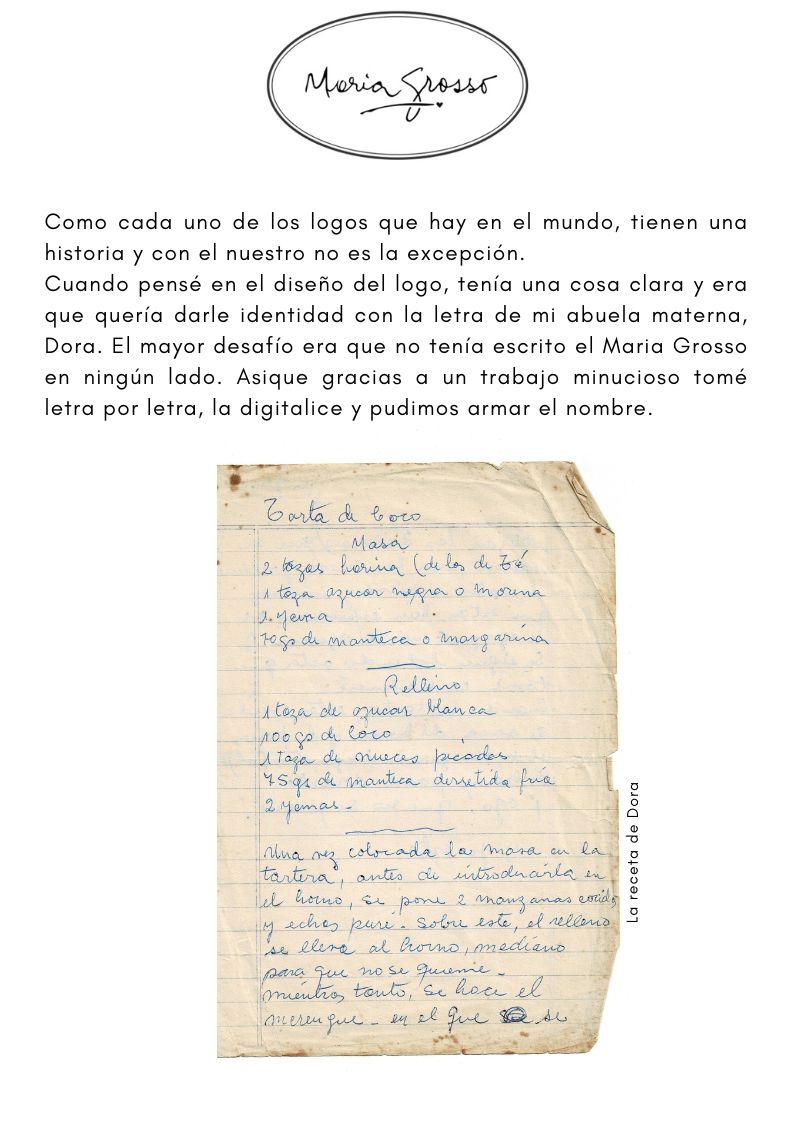 Maria Grosso
Como cada uno de los logos que hay en el mundo, tienen una
historia y con el nuestro no es la excepción.
Cuando pensé en el diseño del logo, tenía una cosa clara y era
que quería darle identidad con la letra de mi abuela materna,
Dora. El mayor desafío era que no tenía escrito el Maria Grosso
en ningún lado. Asique gracias a un trabajo minucioso tomé
letra por letra, la digitalice y pudimos armar el nombre.
Tarta de Coco
Masa
2 tazas harina (de las de Té
1 taza azucar negra o morena
1 yema
70gs de manteca o margarina
Relleno
1 taza de azucar blanca
100gs de Coco
1 Taza de nueces picadas
75gs de manteca derretida fria
2 yemas -
Una vez colocada la masa en la
tartera, antes de introducirla en
el horno, se pone 2 manzanas cocidas
y echas pure. Sobre este, el relleno
se lleva al horno, mediano
para que no se queme -
mientras tanto, se hace el
merengue - en el que se
La receta de Dora